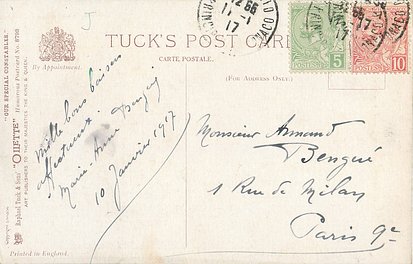 J
TUCK'S POST CARD
CARTE POSTALE.
(FOR ADDRESS ONLY.)
By Appointment.
"OUR SPECIAL CONSTABLES"
"OILETTE" Humorous Postcard No. 8798
Raphael Tuck & Sons'
ART PUBLISHERS TO THEIR MAJESTIES THE KING AND QUEEN.
Printed in England.
5
10
11-1
17
Mille bons baisers
affectueux
Marie Anne
10 Janvier 1917
Monsieur Armand
Bengué
1 Rue de Milan
Paris 9e